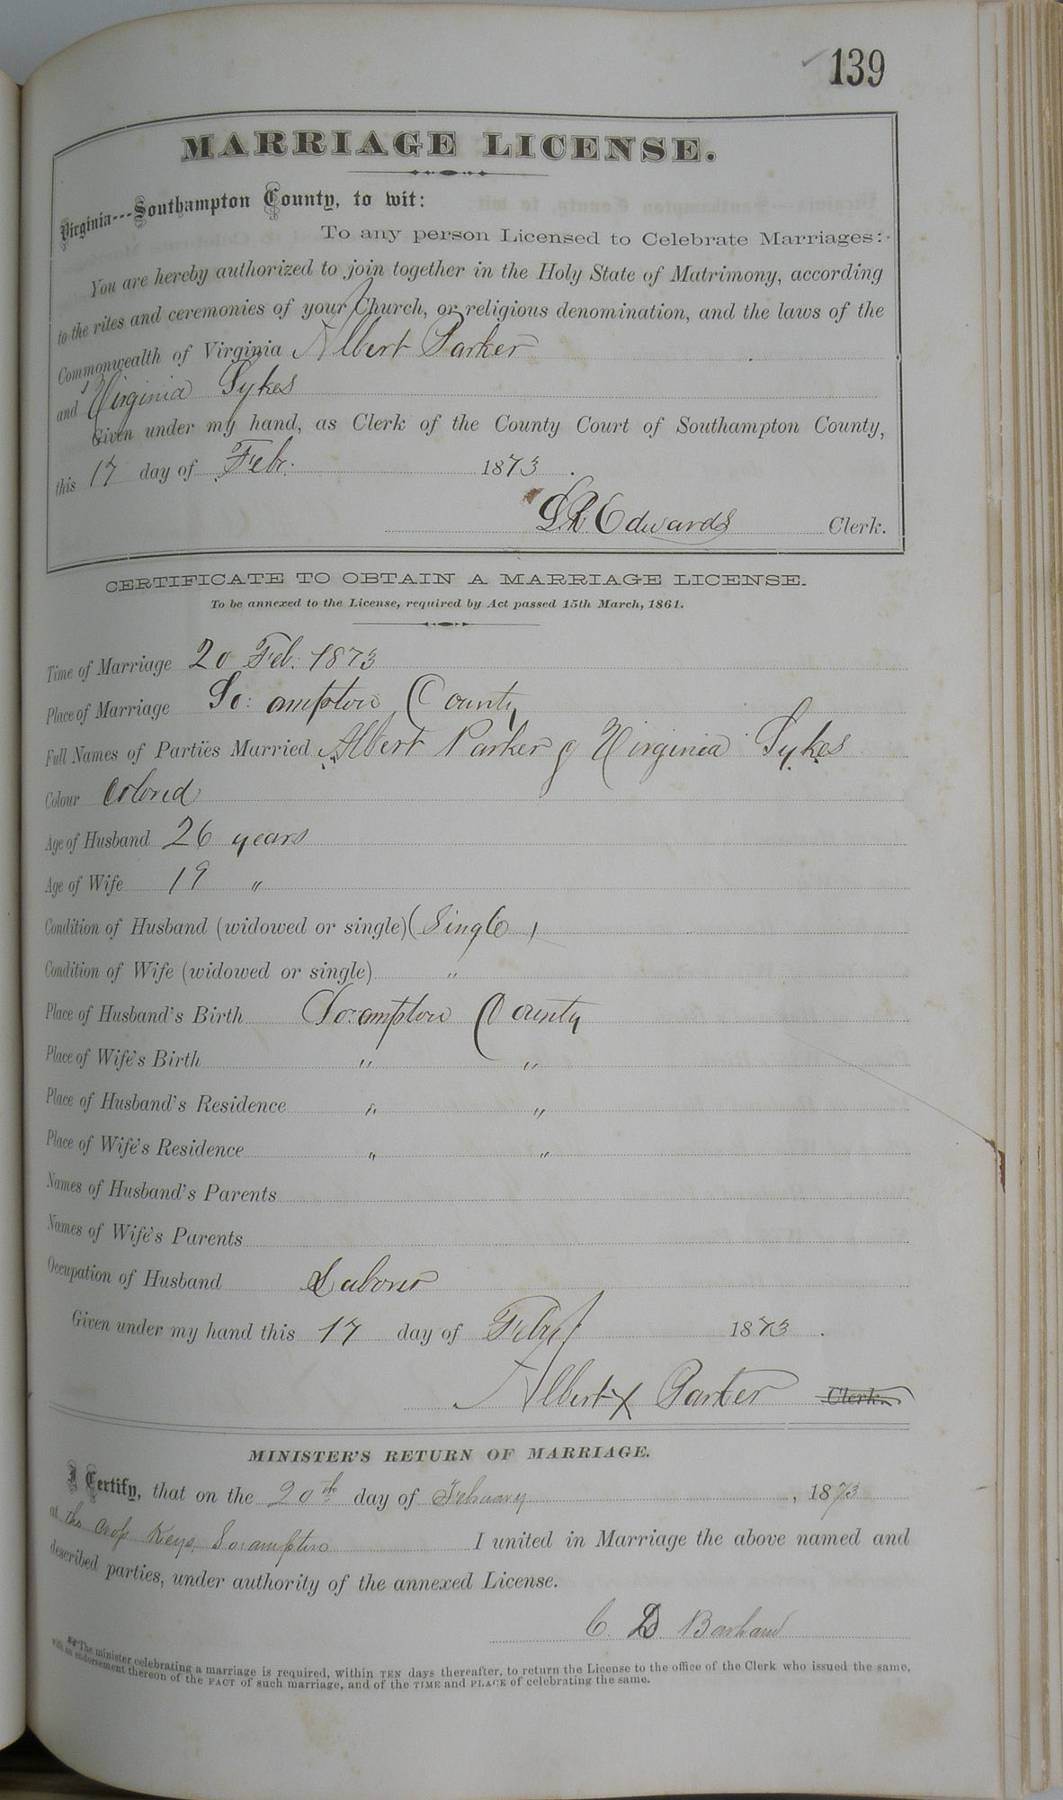 139
MARRIAGE LICENSE.
Virginia---Southampton County, to wit:
To any person Licensed to Celebrate Marriages:
You are hereby authorized to join together in the Holy State of Matrimony, according
to the rites and ceremonies of your Church, or religious denomination, and the laws of the
Commonwealth of Virginia Albert Parker
and Virginia Sykes
Given under my hand, as Clerk of the County Court of Southampton County,
this 17 day of Feby. 1873.
L R Edwards Clerk.
CERTIFICATE TO OBTAIN A MARRIAGE LICENSE.
To be annexed to the License, required by Act passed 15th March, 1861.
Time of Marriage 20 Feb. 1873
Place of Marriage So: ampton County
Full Names of Parties Married Albert Parker & Virginia Sykes
Colour Colored
Age of Husband 26 years
Age of Wife 19 "
Condition of Husband (widowed or single) (Single)
Condition of Wife (widowed or single) "
Place of Husband's Birth So: ampton County
Place of Wife's Birth " "
Place of Husband's Residence " "
Place of Wife's Residence " "
Names of Husband's Parents
Names of Wife's Parents
Occupation of Husband Laborer
Given under my hand this 17 day of Feby 1873.
Albert X Parker Clerk.
MINISTER'S RETURN OF MARRIAGE.
I Certify, that on the 20th day of February, 1873
at the Cross Keys, So: ampton I united in Marriage the above named and
described parties, under authority of the annexed License.
C. D. Barham
The minister celebrating a marriage is required, within TEN days thereafter, to return the License to the office of the Clerk who issued the same,
with an endorsement thereon of the FACT of such marriage, and of the TIME and PLACE of celebrating the same.